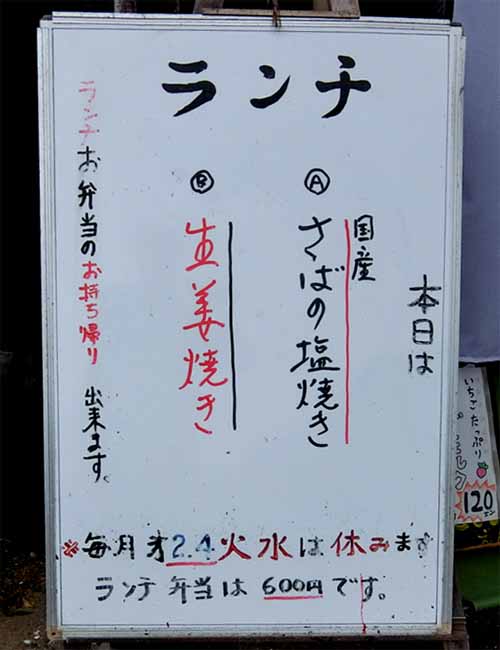 ランチ
本日は
Ⓐ
国産
さばの塩焼き
Ⓑ
生姜焼き
ランチお弁当のお持ち帰り 出来ます。
※毎月才2.4火水は休みます
ランチ弁当は600円です。
いちごたっぷり
120
エン